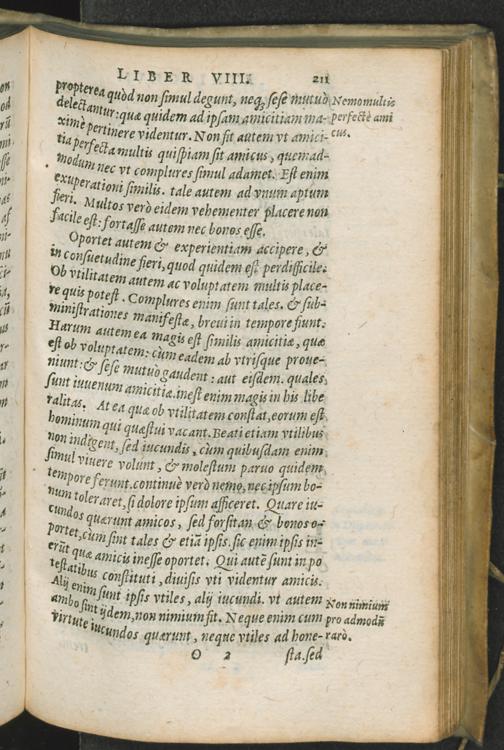 LIBER VIII. 211
propterea quòd non simul degunt, neq; sese mutuò
delectantur: quæ quidem ad ipsam amicitiam ma-
ximè pertinere videntur. Non fit autem vt amici-
tia perfecta multis quispiam sit amicus, quemad-
modum nec vt complures simul adamet. Est enim
exuperationi similis. tale autem ad vnum aptum
fieri. Multos verò eidem vehementer placere non
facile est: fortasse autem nec bonos esse.
Oportet autem & experientiam accipere, &
in consuetudine fieri, quod quidem est perdifficile.
Ob vtilitatem autem ac voluptatem multis place-
re quis potest. Complures enim sunt tales. & sub-
ministrationes manifestæ, breui in tempore fiunt.
Harum autem ea magis est similis amicitiæ, quæ
est ob voluptatem: cùm eadem ab vtrisque proue-
niunt: & sese mutuò gaudent: aut eisdem. quales
sunt iuuenum amicitiæ. inest enim magis in his libe
ralitas. At ea quæ ob vtilitatem constat, eorum est
hominum qui quæstui vacant. Beati etiam vtilibus
non indigent, sed iucundis, cùm quibusdam enim
simul viuere volunt, & molestum paruo quidem
tempore ferunt. continuè verò nemo, nec ipsum bo-
num toleraret, si dolore ipsum afficeret. Quare iu-
cundos quærunt amicos, sed forsitan & bonos o-
portet, cùm sint tales & etiã ipsis. sic enim ipsis in-
erũt quæ amicis inesse oportet. Qui autẽ sunt in po
testatibus constituti, diuisis vti videntur amicis.
Alij enim sunt ipsis vtiles, alij iucundi. vt autem
ambo sint ijdem, non nimium fit. Neque enim cum
virtute iucundos quærunt, neque vtiles ad hone-
O 2 sta. sed
Nemo multis
perfectè ami
cus.
Non nimium
pro admodũ
rarò.